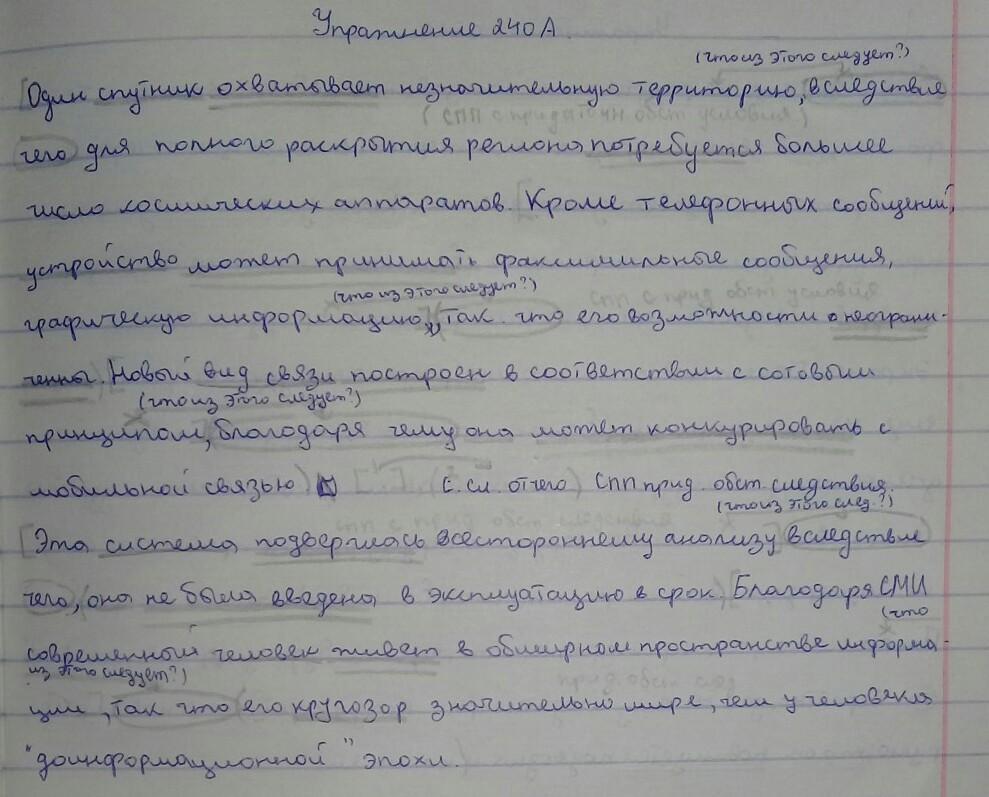 Упражнение 240 А.
(что из этого следует?)
[Один спутник охватывает незначительную территорию, вследствие
(СПП с придаточн обст условия)
чего для полного раскрытия региона потребуется большее
число космических аппаратов. Кроме телефонных сообщений,
устройство может принимать факсимильные сообщения,
(что из этого следует?) СПП с прид обст условия
графическую информацию, так что его возможности неограни-
ченны. Новый вид связи построен в соответствии с сотовым
(что из этого следует?)
принципом, благодаря чему она может конкурировать с
мобильной связью) (с. сл. отчего) Спп прид. обст. следствия.
(что из этого след.?)
спп с прид обст следствия
[Эта система подверглась всестороннему анализу вследствие
чего, она не была введена в эксплуатацию в срок. [Благодаря СМИ
(что
современный человек живет в обширном пространстве информа-
из этого следует?)
прид. обст след
ции, так что его кругозор значительно шире, чем у человека
"доинформационной" эпохи.